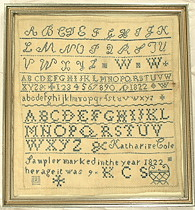 A B C D E F G H I J K
L M N O P Q R S T U
V W X Y Z W W
ABCDEFGHIJKLMNOPQRSTUVW
XYZ& 1 2 3 4 5 6 7 8 90
abcdefghijklmnopqrstuvwxyz
ABCDEFGHIJKL
MNOPQRSTUV
WXYZ & Katharine Cole
Sampler marked in the year 1822
her age it was 9 K C S